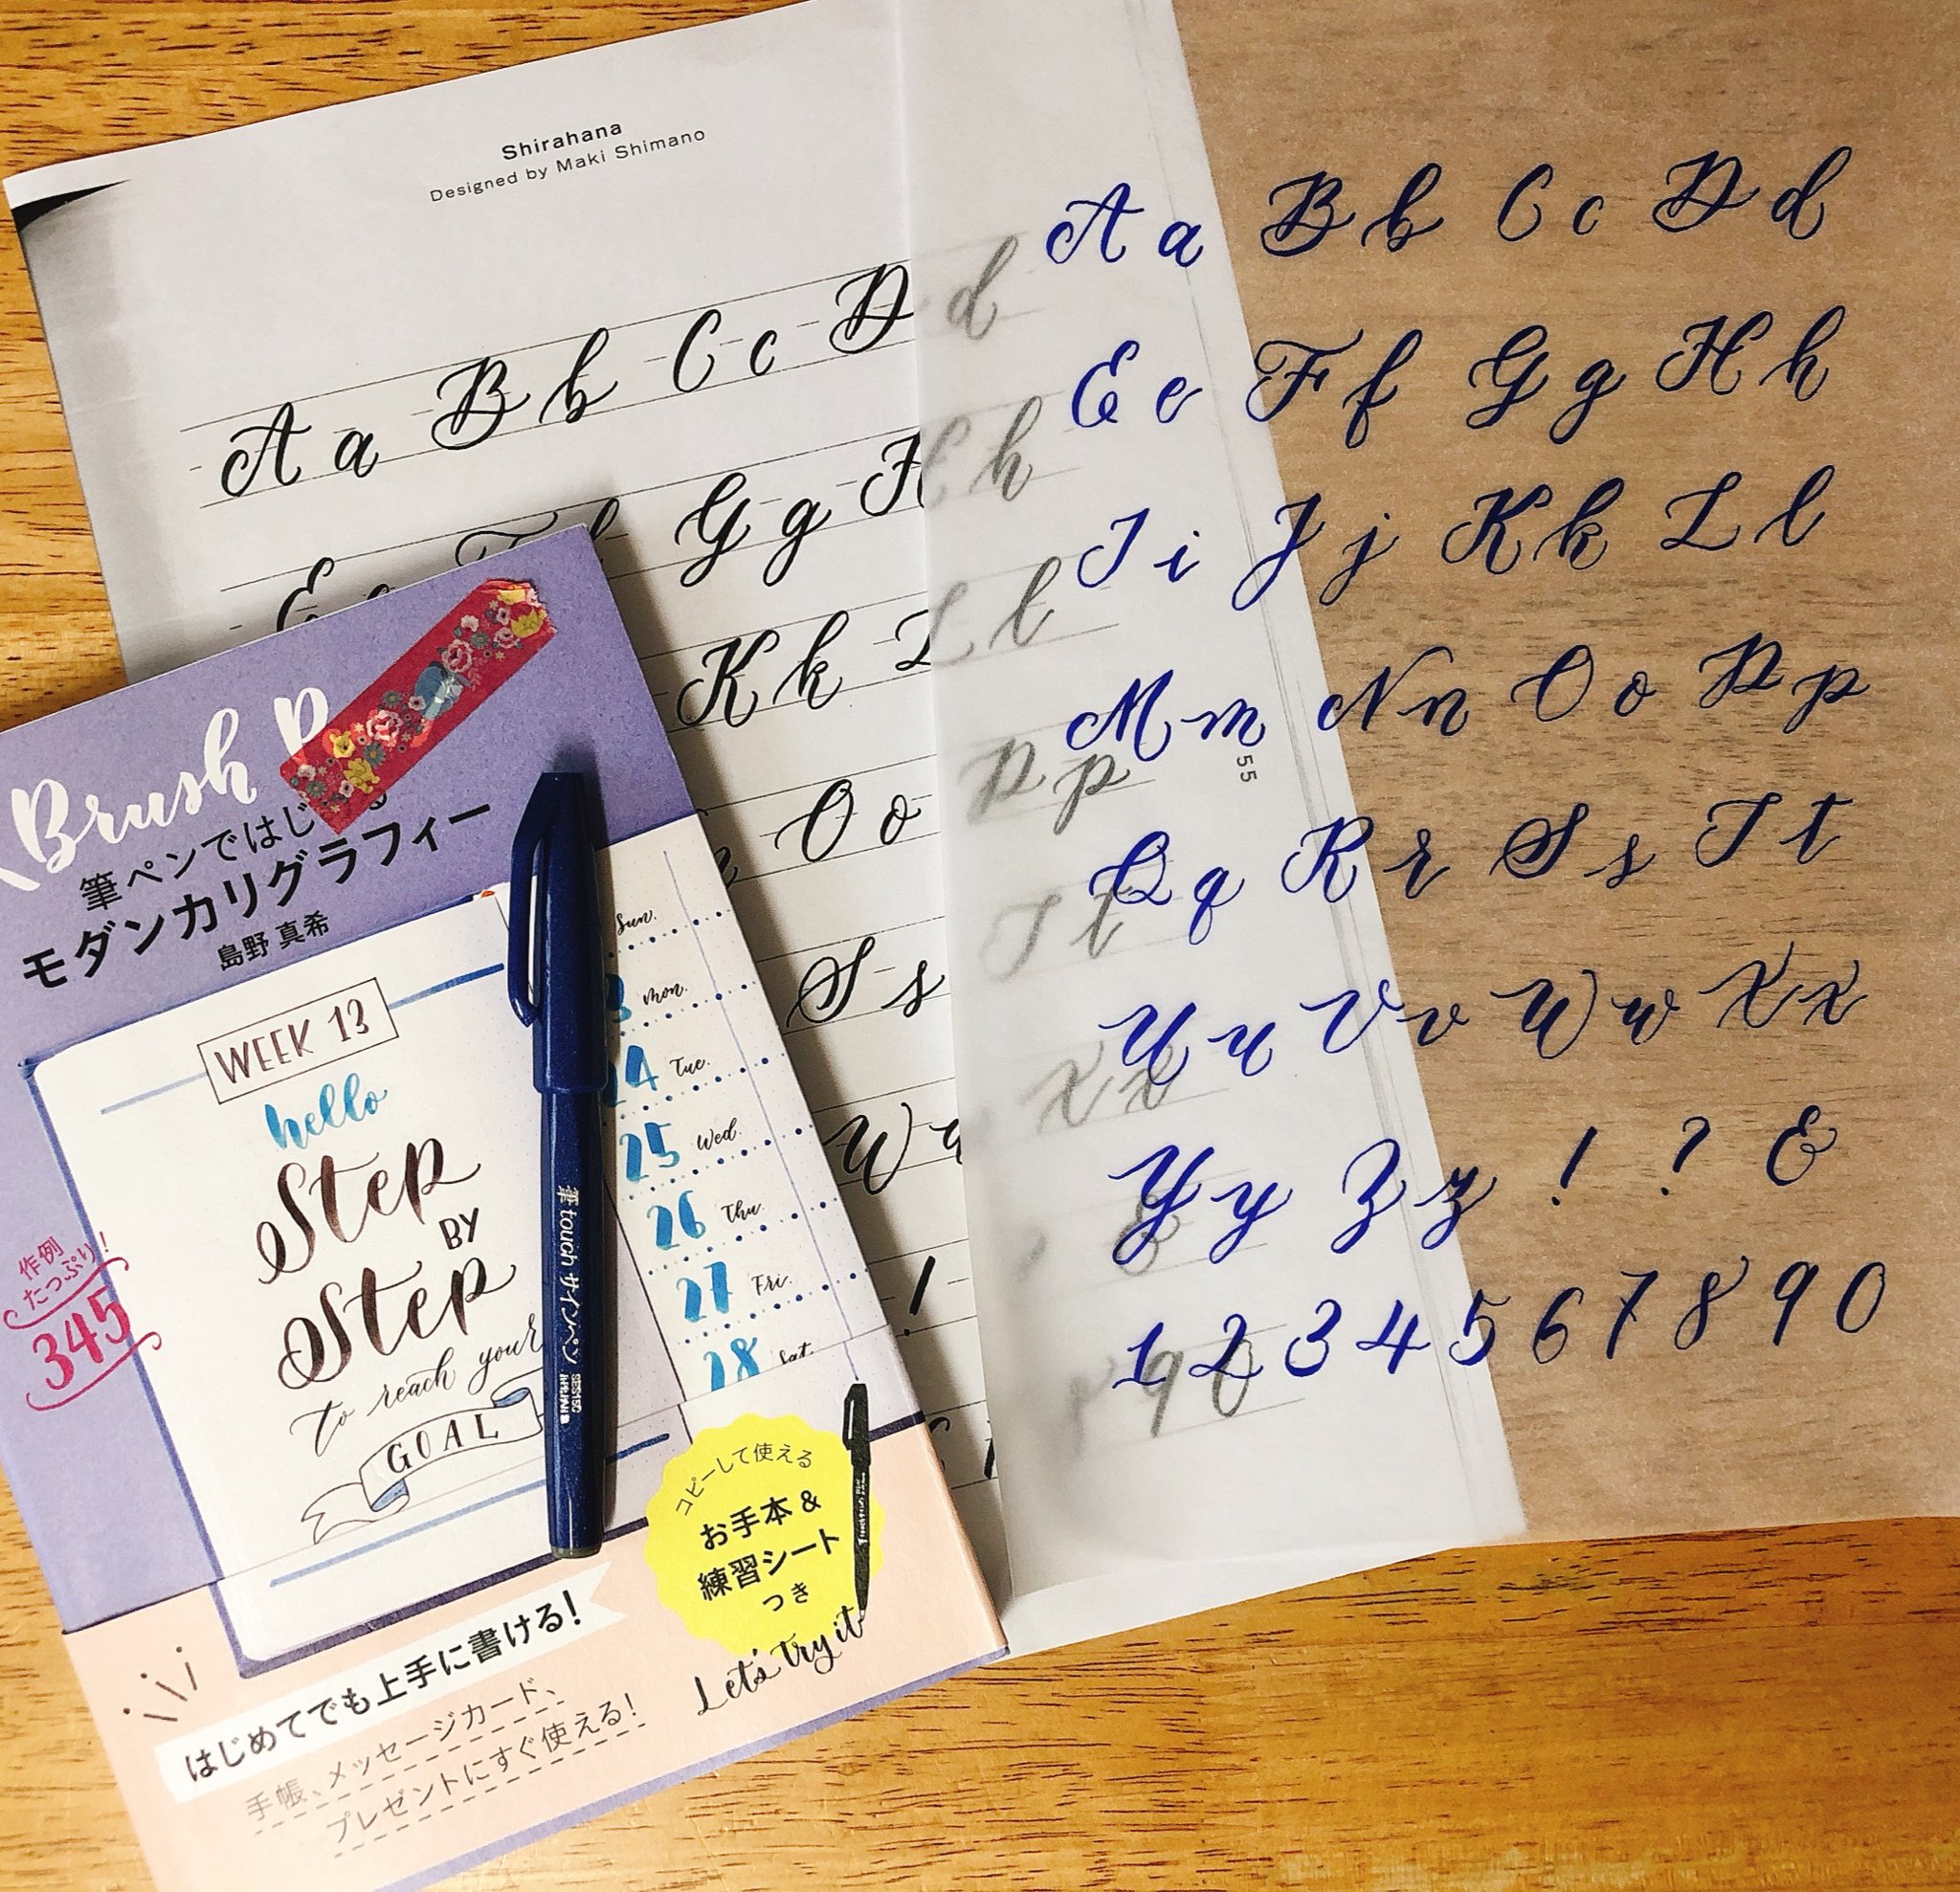 Shirahana
Designed by Maki Shimano
A a B b C c D d
G g H h
K k L l
O o P p
S s T t
W w X x
!
9 0
A a B b C c D d
E e F f G g H h
I i J j K k L l
M m N n O o P p
Q q R r S s T t
U u V v W w X x
Y y Z z ! ? &
1 2 3 4 5 6 7 8 9 0
55
Brush P
筆ペンではじ
モダンカリグラフィー
島野 真希
WEEK 13
hello
Step
BY
Step
to reach your
GOAL
Sun.
3 Mon.
24 Tue.
25 Wed.
26 Thu.
27 Fri.
28 Sat.
筆 touch サインペン SES15C
作例
たっぷり!
345
コピーして使える
お手本 &
練習シート
つき
Let's try it
はじめてでも上手に書ける!
手帳、メッセージカード、
プレゼントにすぐ使える!